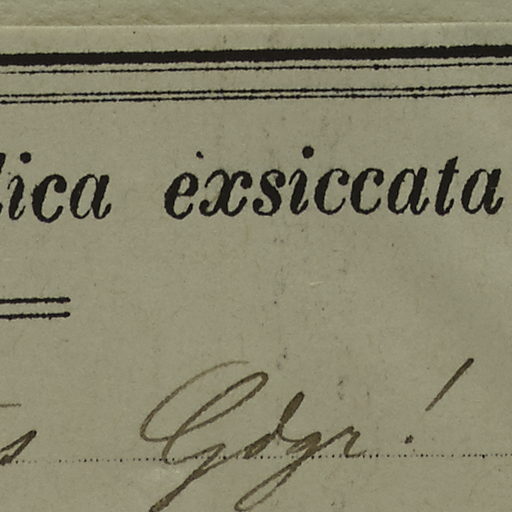 lica exsiccata
s Gdgr!